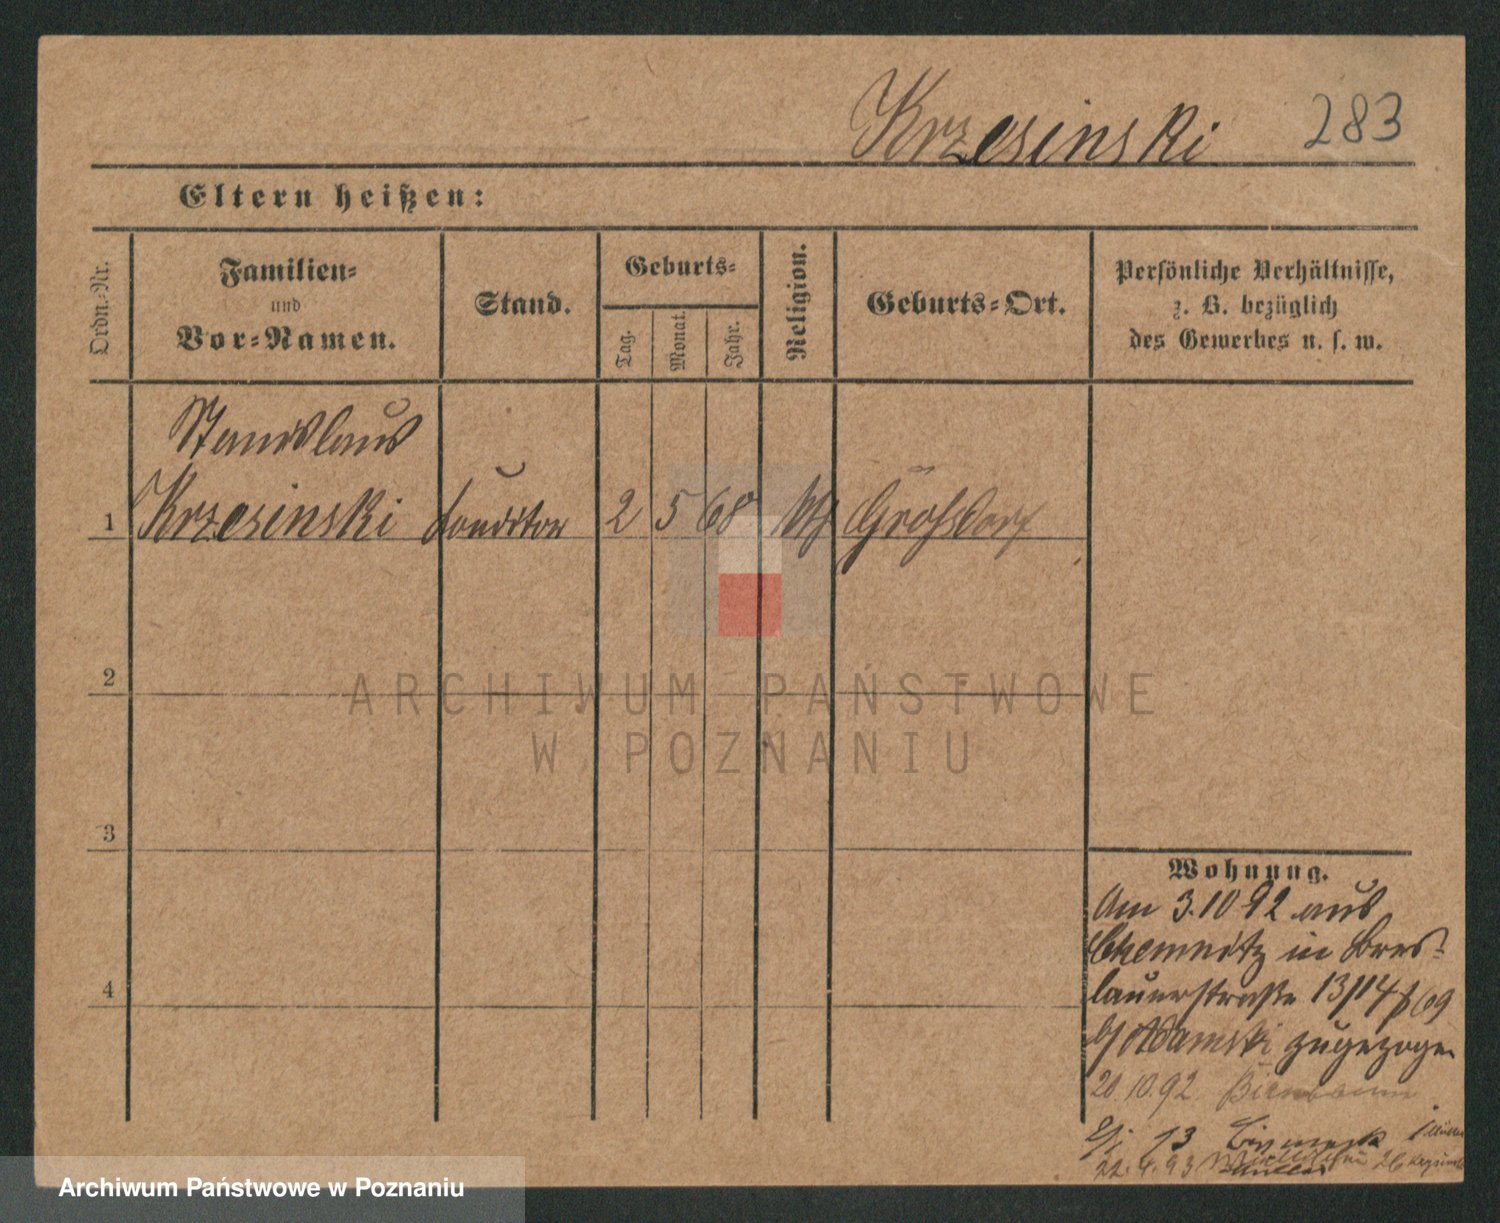 Krzesinski 283
Eltern heißen:
Ordn.-Nr.
Familien-
und
Vor-Namen.
Stand.
Geburts-
Tag.
Monat.
Jahr.
Religion.
Geburts-Ort.
Persönliche Verhältnisse,
z. B. bezüglich
des Gewerbes u. s. w.
Stanislaus
1 Krzesinski Conditor 2 5 68 Großdorf
2
3
4
ARCHIWUM PAŃSTWOWE
W POZNANIU
Wohnung.
Am 3.10 92 aus
Chemnitz in Bres-
lauerstraße 13/14
b/ Adamski zugezogen
20.10.92. Birnbaum
22.4.93
Archiwum Państwowe w Poznaniu